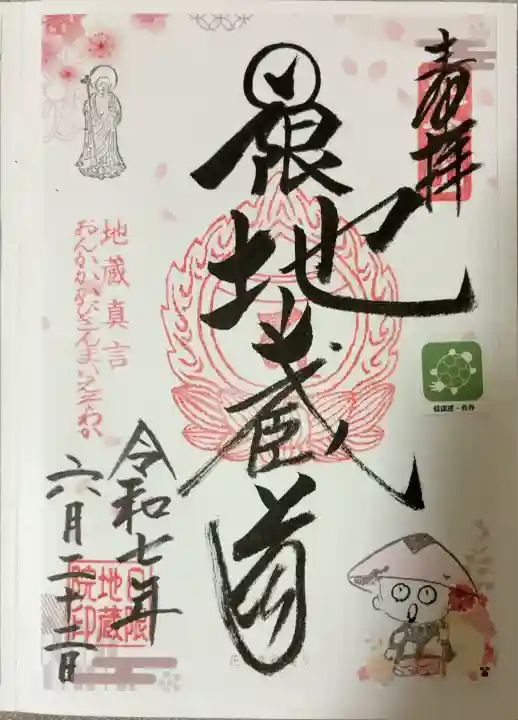 奉拝
日限地蔵尊
地蔵真言
おんかかかびさんまいえそわか
令和七年
六月二十二日
日限
地蔵
院印